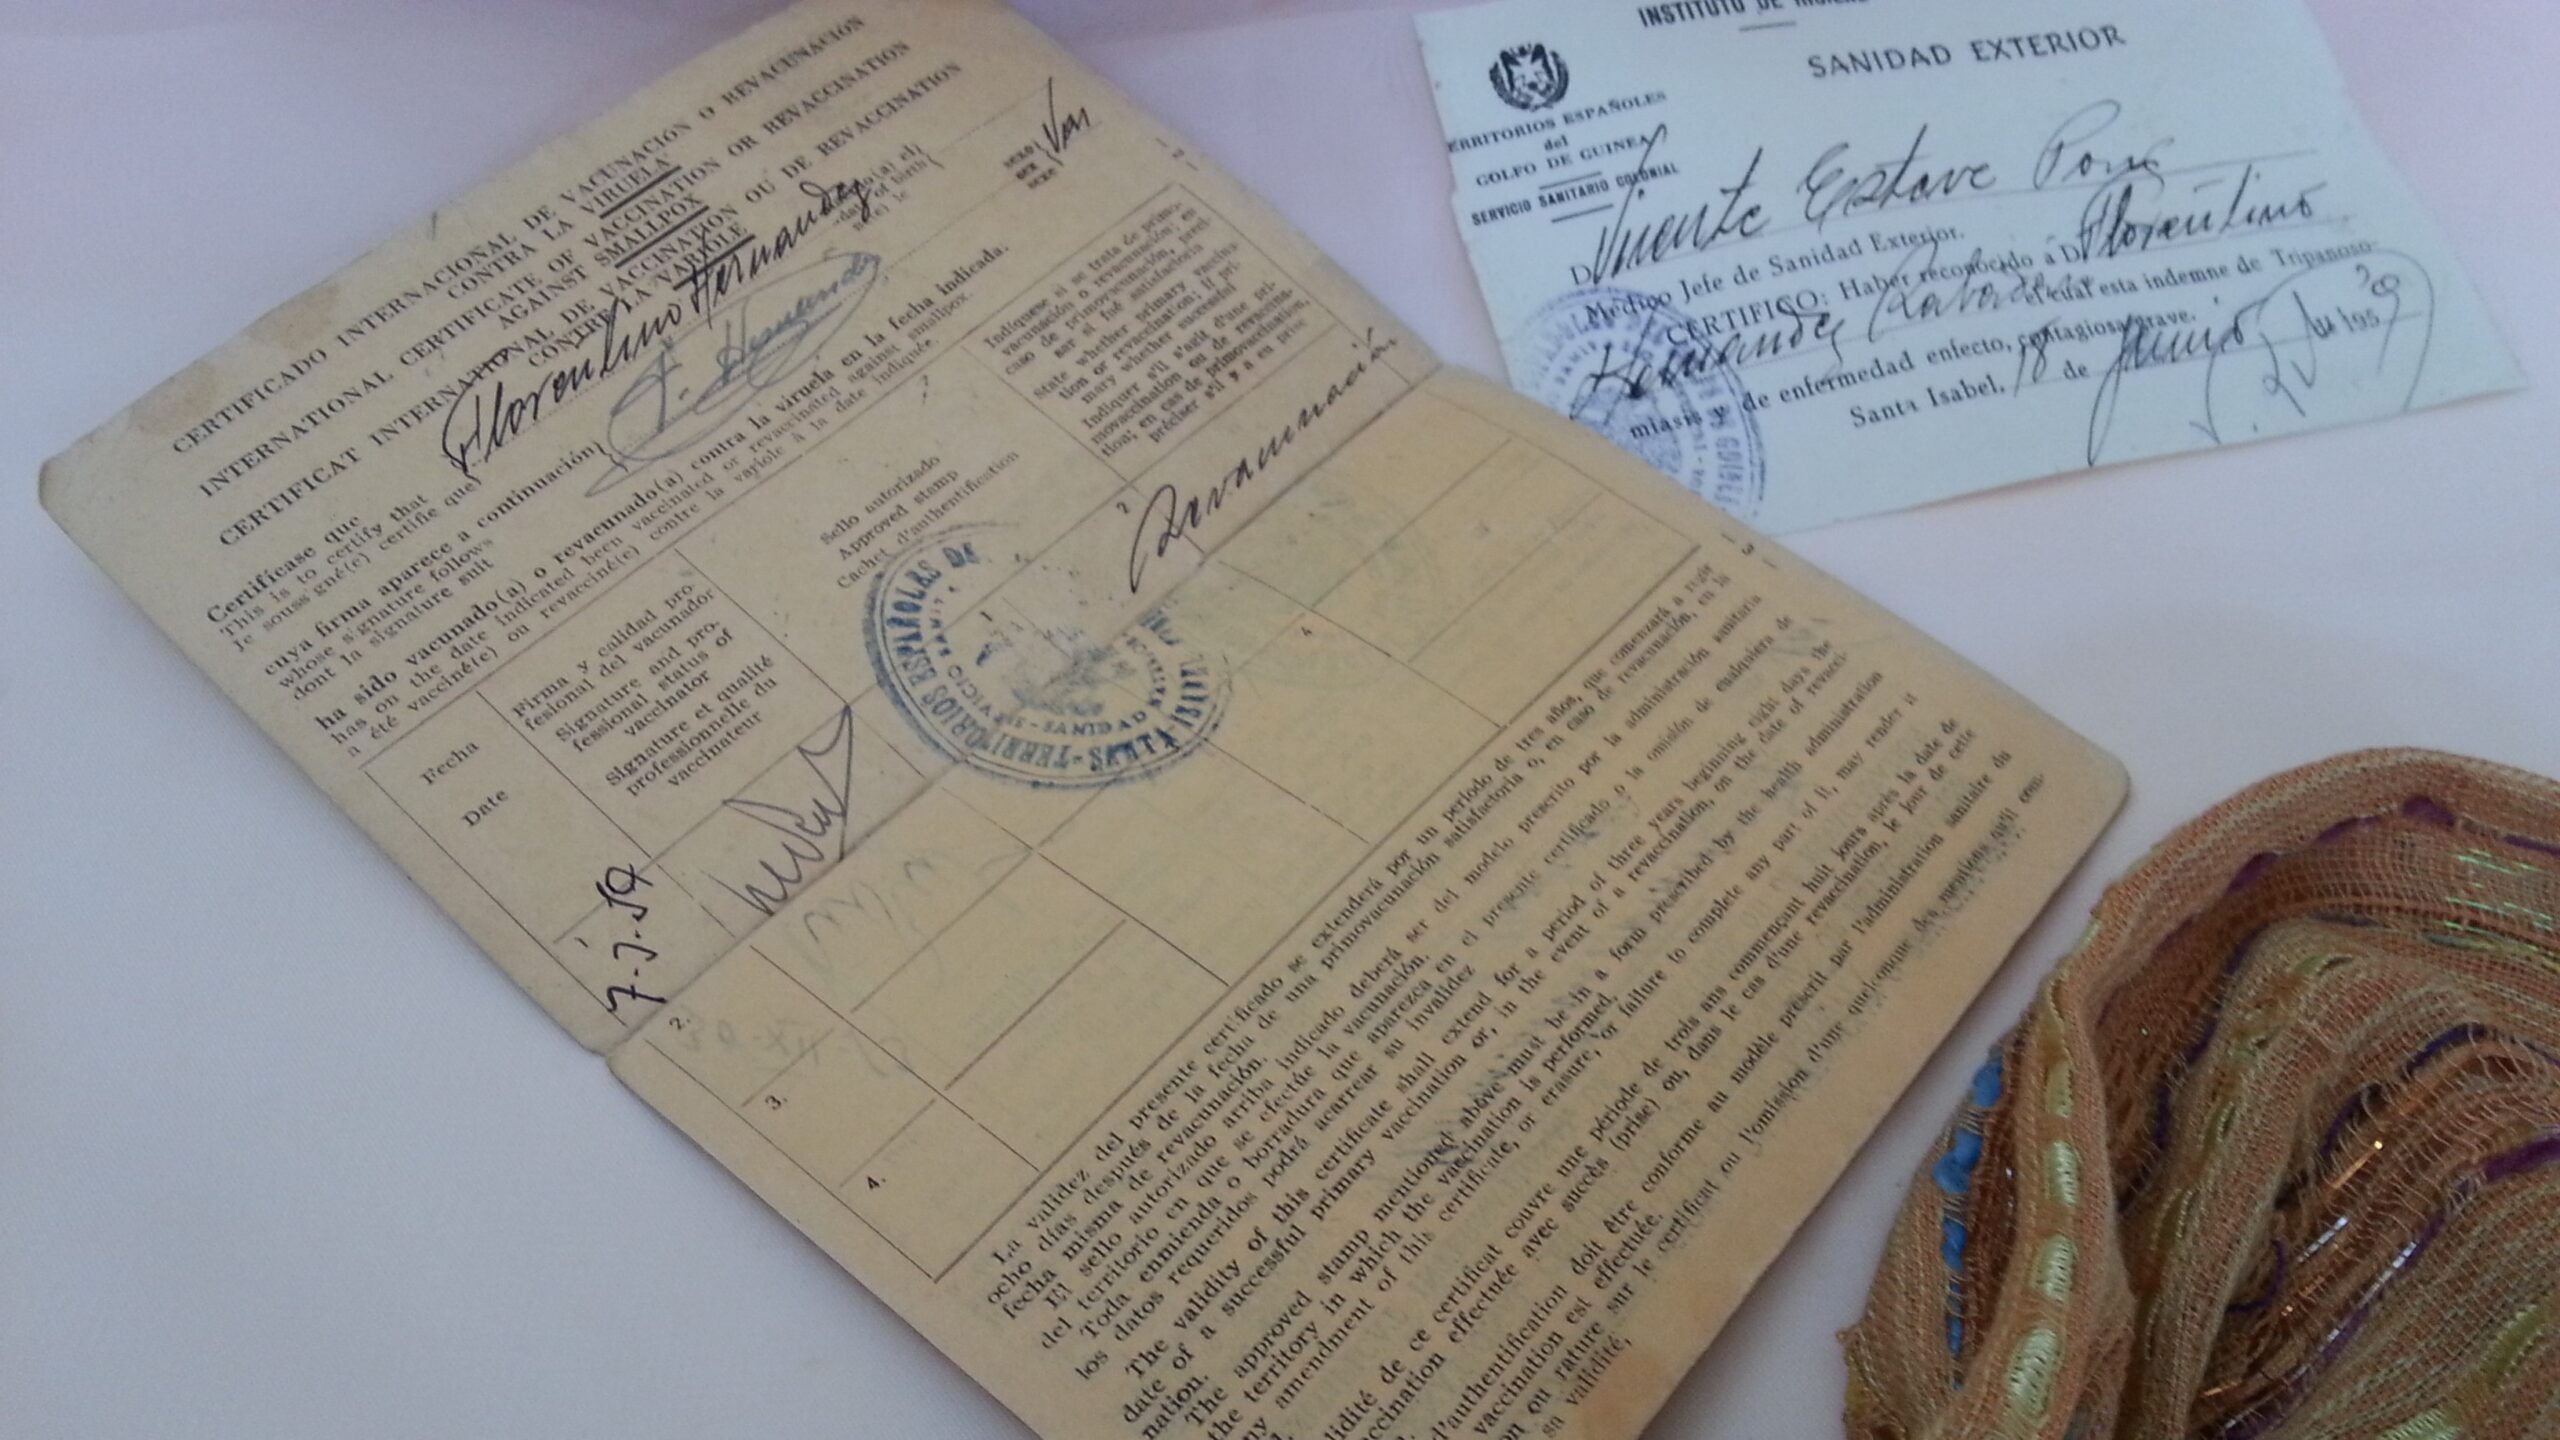 CERTIFICADO INTERNACIONAL DE VACUNACIÓN O REVACUNACIÓN
CONTRA LA VIRUELA
INTERNATIONAL CERTIFICATE OF VACCINATION OR REVACCINATION
AGAINST SMALLPOX
CERTIFICAT INTERNATIONAL DE VACCINATION OU DE REVACCINATION
CONTRE LA VARIOLE
Certifícase que
This is to certify that
Je soussigné(e) certifie que
Florentino Hernandez
(a) el
date of birth
né(e) le
sexo
sex
sexe
Var
cuya firma aparece a continuación
whose signature follows
dont la signature suit
F. Hernandez
ha sido vacunado(a) o revacunado(a) contra la viruela en la fecha indicada.
has on the date indicated been vaccinated or revaccinated against smallpox.
a été vacciné(e) ou revacciné(e) contre la variole à la date indiquée.
Fecha
Date
Firma y calidad pro-
fesional del vacunador
Signature and pro-
fessional status of
vaccinator
Signature et qualité
professionnelle du
vaccinateur
Sello autorizado
Approved stamp
Cachet d'authentification
Indíquese si se trata de primo-
vacunación o revacunación; en
caso de primovacunación, preci-
sar si fué satisfactoria
State whether primary vaccina-
tion or revaccination; if pri-
mary whether successful
Indiquer s'il s'agit d'une pri-
movaccination ou de revaccina-
tion; en cas de primovaccination,
préciser s'il y a eu prise
1
2
Revacunación
TERRITORIOS ESPAÑOLES DE
SANIDAD
2.
3.
4.
4
3
La validez del presente certificado se extenderá por un período de tres años, que comenzará a regir
ocho días después de la fecha de una primovacunación satisfactoria o, en caso de revacunación, en la
fecha misma de revacunación.
El sello autorizado arriba indicado deberá ser del modelo prescrito por la administración sanitaria
del territorio en que se efectúe la vacunación.
Toda enmienda o borradura que aparezca en el presente certificado o la omisión de cualquiera de
los datos requeridos podrá acarrear su invalidez
The validity of this certificate shall extend for a period of three years beginning eight days after the
date of a successful primary vaccination or, in the event of a revaccination, on the date of revacci-
nation.
The approved stamp mentioned above must be in a form prescribed by the health administration
the territory in which the vaccination is performed.
any amendment of this certificate, or erasure, or failure to complete any part of it, may render it
validité de ce certificat couvre une période de trois ans commençant huit jours après la date de
vaccination effectuée avec succès (prise) ou, dans le cas d'une revaccination, le jour de cette
d'authentification doit être conforme au modèle prescrit par l'administration sanitaire du
vaccination est effectuée.
ou rature sur le certificat ou l'omission d'une quelconque des mentions qu'il com-
sa validité,
INSTITUTO DE HIGIENE
SANIDAD EXTERIOR
TERRITORIOS ESPAÑOLES
del
GOLFO DE GUINEA
SERVICIO SANITARIO COLONIAL
D. Vicente Estave Pons
Médico Jefe de Sanidad Exterior.
CERTIFICO: Haber reconocido á D. Florentino
Hernandez el cual esta indemne de Tripanoso-
miasis y de enfermedad enfecto, contagiosa grave.
Santa Isabel, 18 de Junio 195